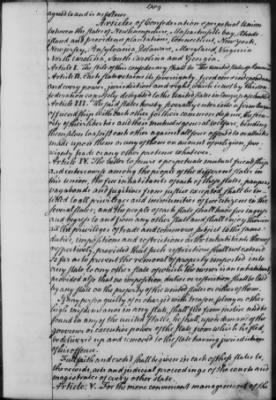 agreed to and is as follows.
Articles of Confederation & perpetual Union
between the states of Newhampshire, Massachusetts bay, Rhode
island and providence plantations, Connecticut, New york,
New jersey, Pensylvania, Delaware, Maryland, Virginia
North carolina, South carolina and Georgia.
Article I. The stile of this confederacy shall be "The United States of America."
Article II. Each state retains its sovereignty, freedom & independence
and every power, jurisdiction and right, which is not by this con-
federation expressly delegated to the United States in congress assembled
Article III. The said states hereby severally enter into a firm league
of friendship with each other for their common defence, the secu-
rity of their liberties and their mutual & general welfare, binding
themselves to assist each other against all force offered to or attacks
made upon them or any of them on account of religion, sove-
reignty, trade or any other pretence whatever.
Article IV. The better to secure & perpetuate mutual friendship
and intercourse among the people of the different states in
this union, the free inhabitants of each of these states, paupers
vagabonds and fugitives from justice excepted, shall be in-
titled to all privileges and immunities of free citizens in the
several states; and the people of each state shall have free ingress
and regress to and from any other state and shall enjoy therein
all the privileges of trade and commerce subject to the same
duties, impositions and restrictions as the inhabitants thereof
respectively, provided that such restrictions shall not extend
so far as to prevent the removal of property imported into
any state to any other state of which the owner is an inhabitant;
provided also that no imposition, duties or restriction shall be laid
by any state on the property of the united states or either of them.
If any person guilty of or charged with treason, felony or other
high misdemeanor in any state, shall flee from justice and be
found in any of the united states, he shall, upon demand of the
governor or executive power of the state from which he fled,
be delivered up and removed to the state having jurisdiction
of his offence.
Full faith and credit shall be given in each of these states to
the records, acts and judicial proceedings of the courts and
magistrates of every other state.
Article V. For the more convenient management of the